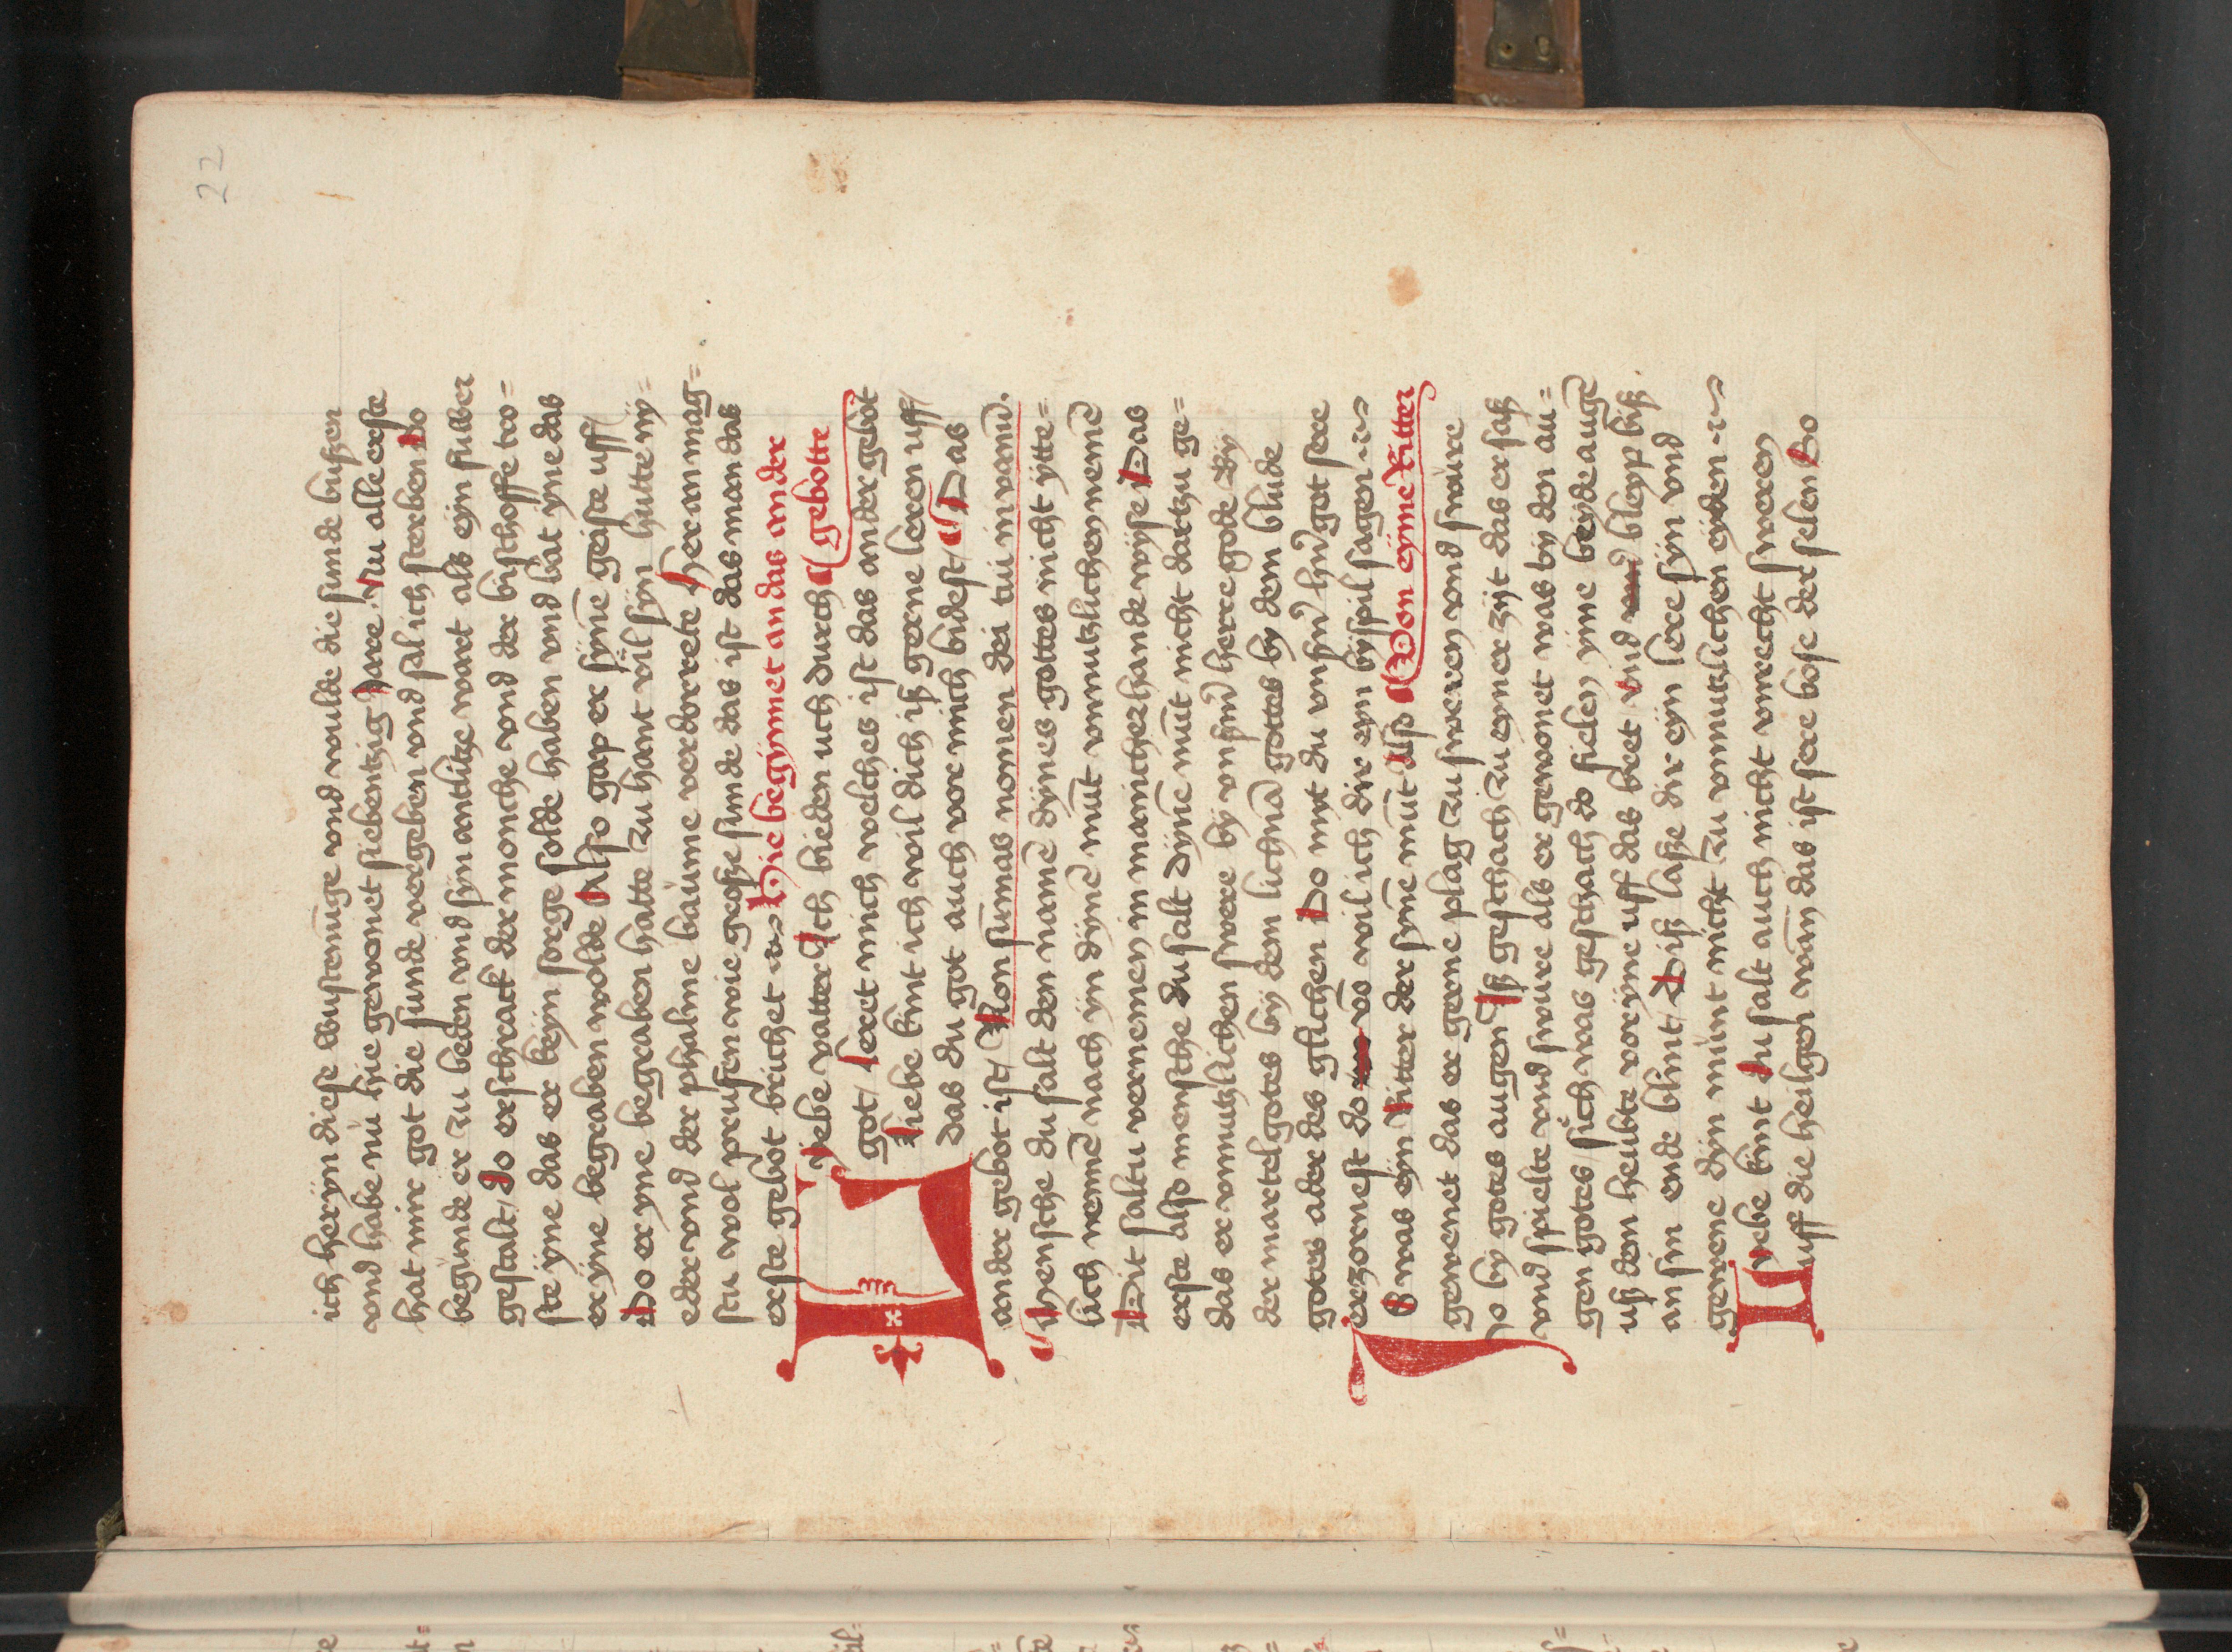 22
ich herÿn diese wustenūge vnd wulde die sunde bußen
vnd habe nu hie gewonet siebentzig Jare Nu alle erste
hat mir got die sunde vergeben vnd sal ich sterben Do
begunde er zu beden vnd sÿn antlitze wart als eÿn silber
gestalt / Do erschrack der monche vnd der bischoffe tro=
ste ÿne das er keÿn sorge solde haben vnd bat ÿne das
er ÿne begraben wolde Also gap er sÿne geiste uff /
Do er yne begraben hatte zu hant vil sÿn hutte nÿ=
eder vnd der phalme baume verdorrete Her an mag=
stu wol prufen wie große sunde das ist das man das
erste gebot brichet Hie begÿnnet an das ander
gebotte
Liebe vatter Ich bieden uch durch
got / leret mich welches ist das ander gebot
Liebe kint ich wil dich iß gerne leren uff /
das du got auch vor mich bidest / Das
ander gebot ist / Non sumas nomen dei tui in vanū.
Mensche du salt den namē dÿnes gottes nicht ÿtte=
lich nennē nach ÿn dÿnē mūt vnnutzlichen nemē
Dit saltu vernemen in manicherhande wÿse Das
erste also mensche du salt dÿnē mūt nicht dartzu ge=
das er vnnutzlichen swere bÿ vnsm̄ herre gode Bÿ
der martel gotes bÿ dem lichnā gottes by dem blude
gotes ader des glichen Do myt du vnsm̄ hrn̄ got sere
erzornest do vō wil ich dir eyn bÿspil sagen
Von eÿme Ritter
Iß was eÿn Ritter der sÿnē mūt also
gewenet das er gerne plag zu sweren vnd swure
Jo by gotes augen Iß geschach zu eyner zÿt das er saß
vnd spielte vnd swure als er gewonet was bÿ den au=
gen gotes sich was geschach do fielen ÿme beÿde augē
uß dem heubte vor ÿme uff das bret vnd bleyp biß
an sin ende blint / Diß laße dir eÿn lere sÿn vnd
gewene dÿn mūnt nicht zu vnnutzlichen eÿden
Liebe kint Du salt auch nicht vnrecht sweren
uff die heilgen wān das ist sere bose der selen Do